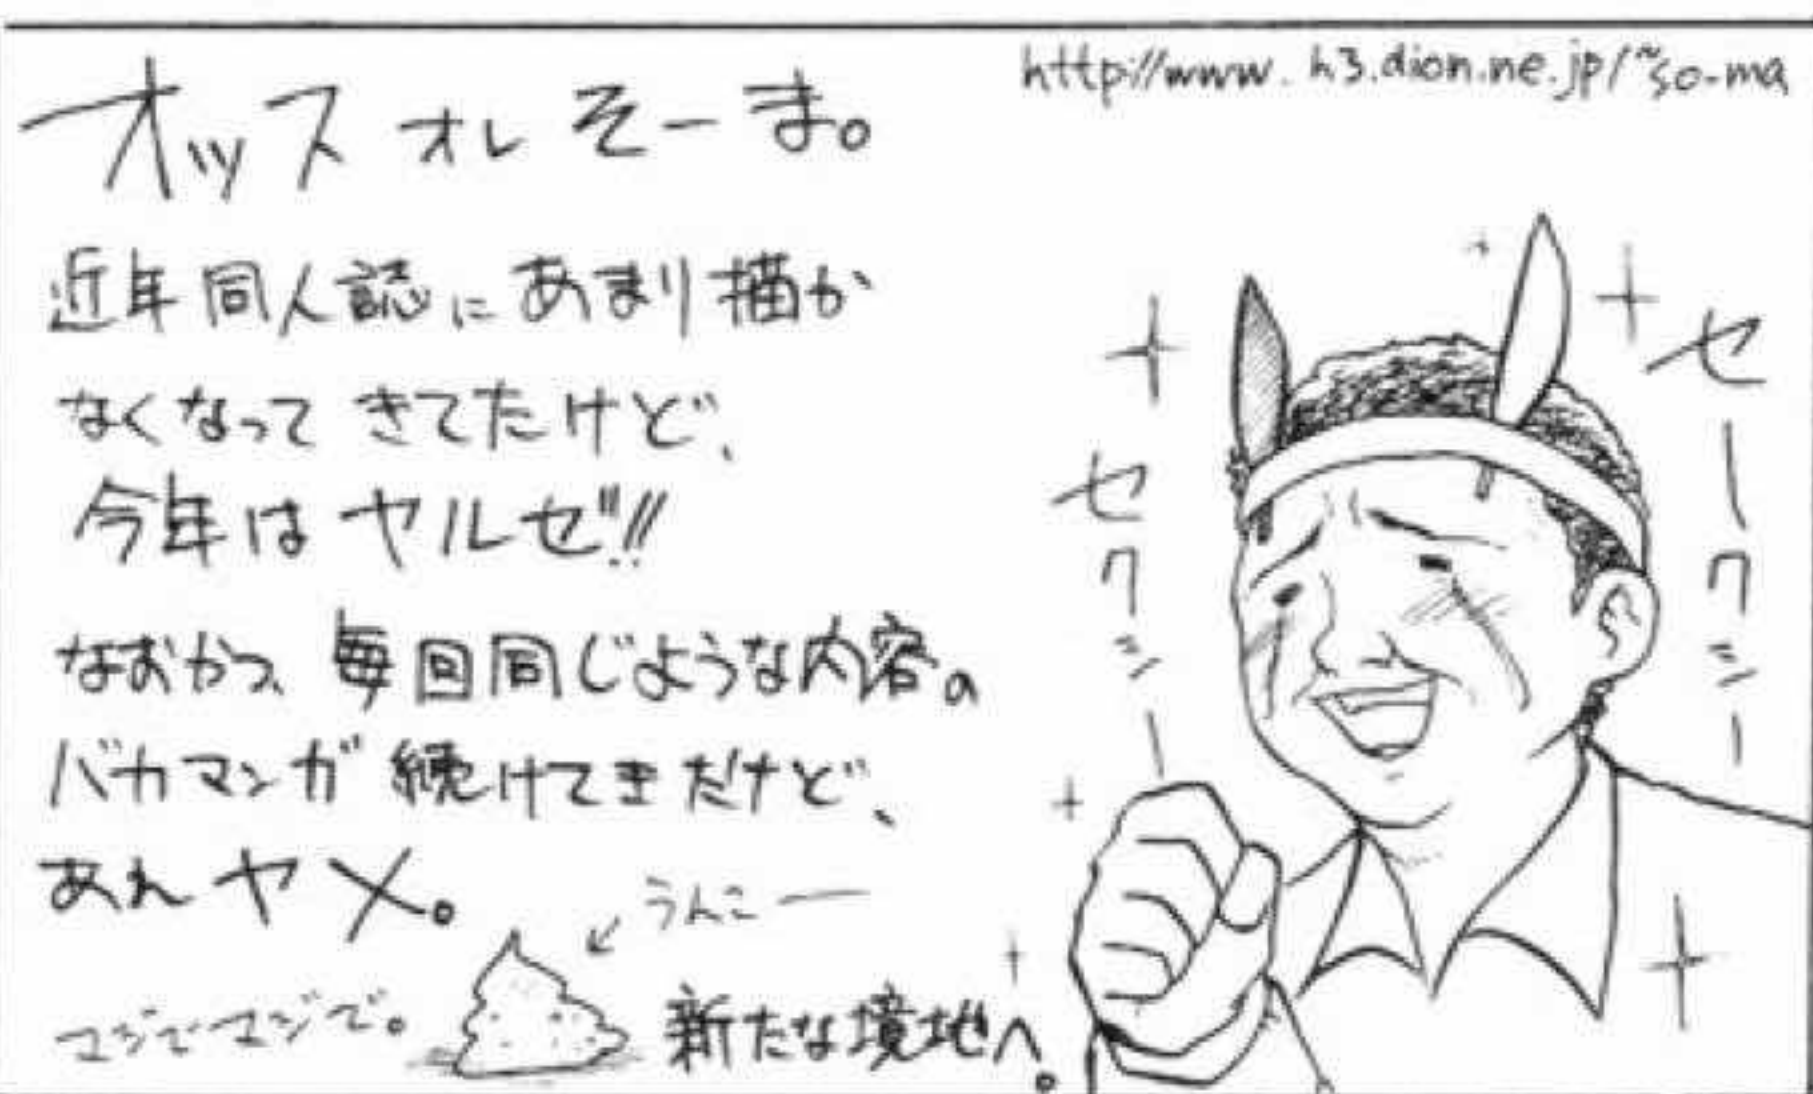 オッス オレ そーま。
http://www.h3.dion.ne.jp/~so-ma
近年同人誌にあまり描か
なくなってきてたけど、
今年はヤルゼ!!
なおかつ、毎回同じような内容の
バカマンガ続けてきたけど、
あれヤメ。
うんこー
マジでマジで。
新たな境地へ。
セクシー
セークシー